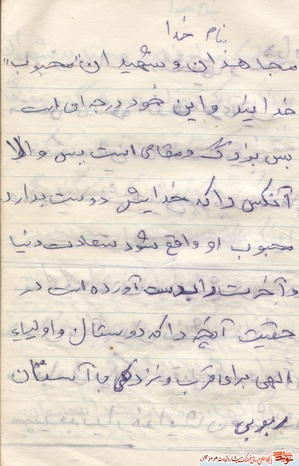 بنام خدا
مجاهدان و شهیدان "محبوب"
خدایند و این خود درجه ای است
بس بزرگ و مقامی است بس والا
آنکس را که خدایش دوست بدارد
محبوب او واقع شود سعادت دنیا
و آخرت را بدست آورده است در
حقیقت آنچه را که دوستان و اولیاء
الهی برای قرب و نزدیکی با آستان
ربوبی